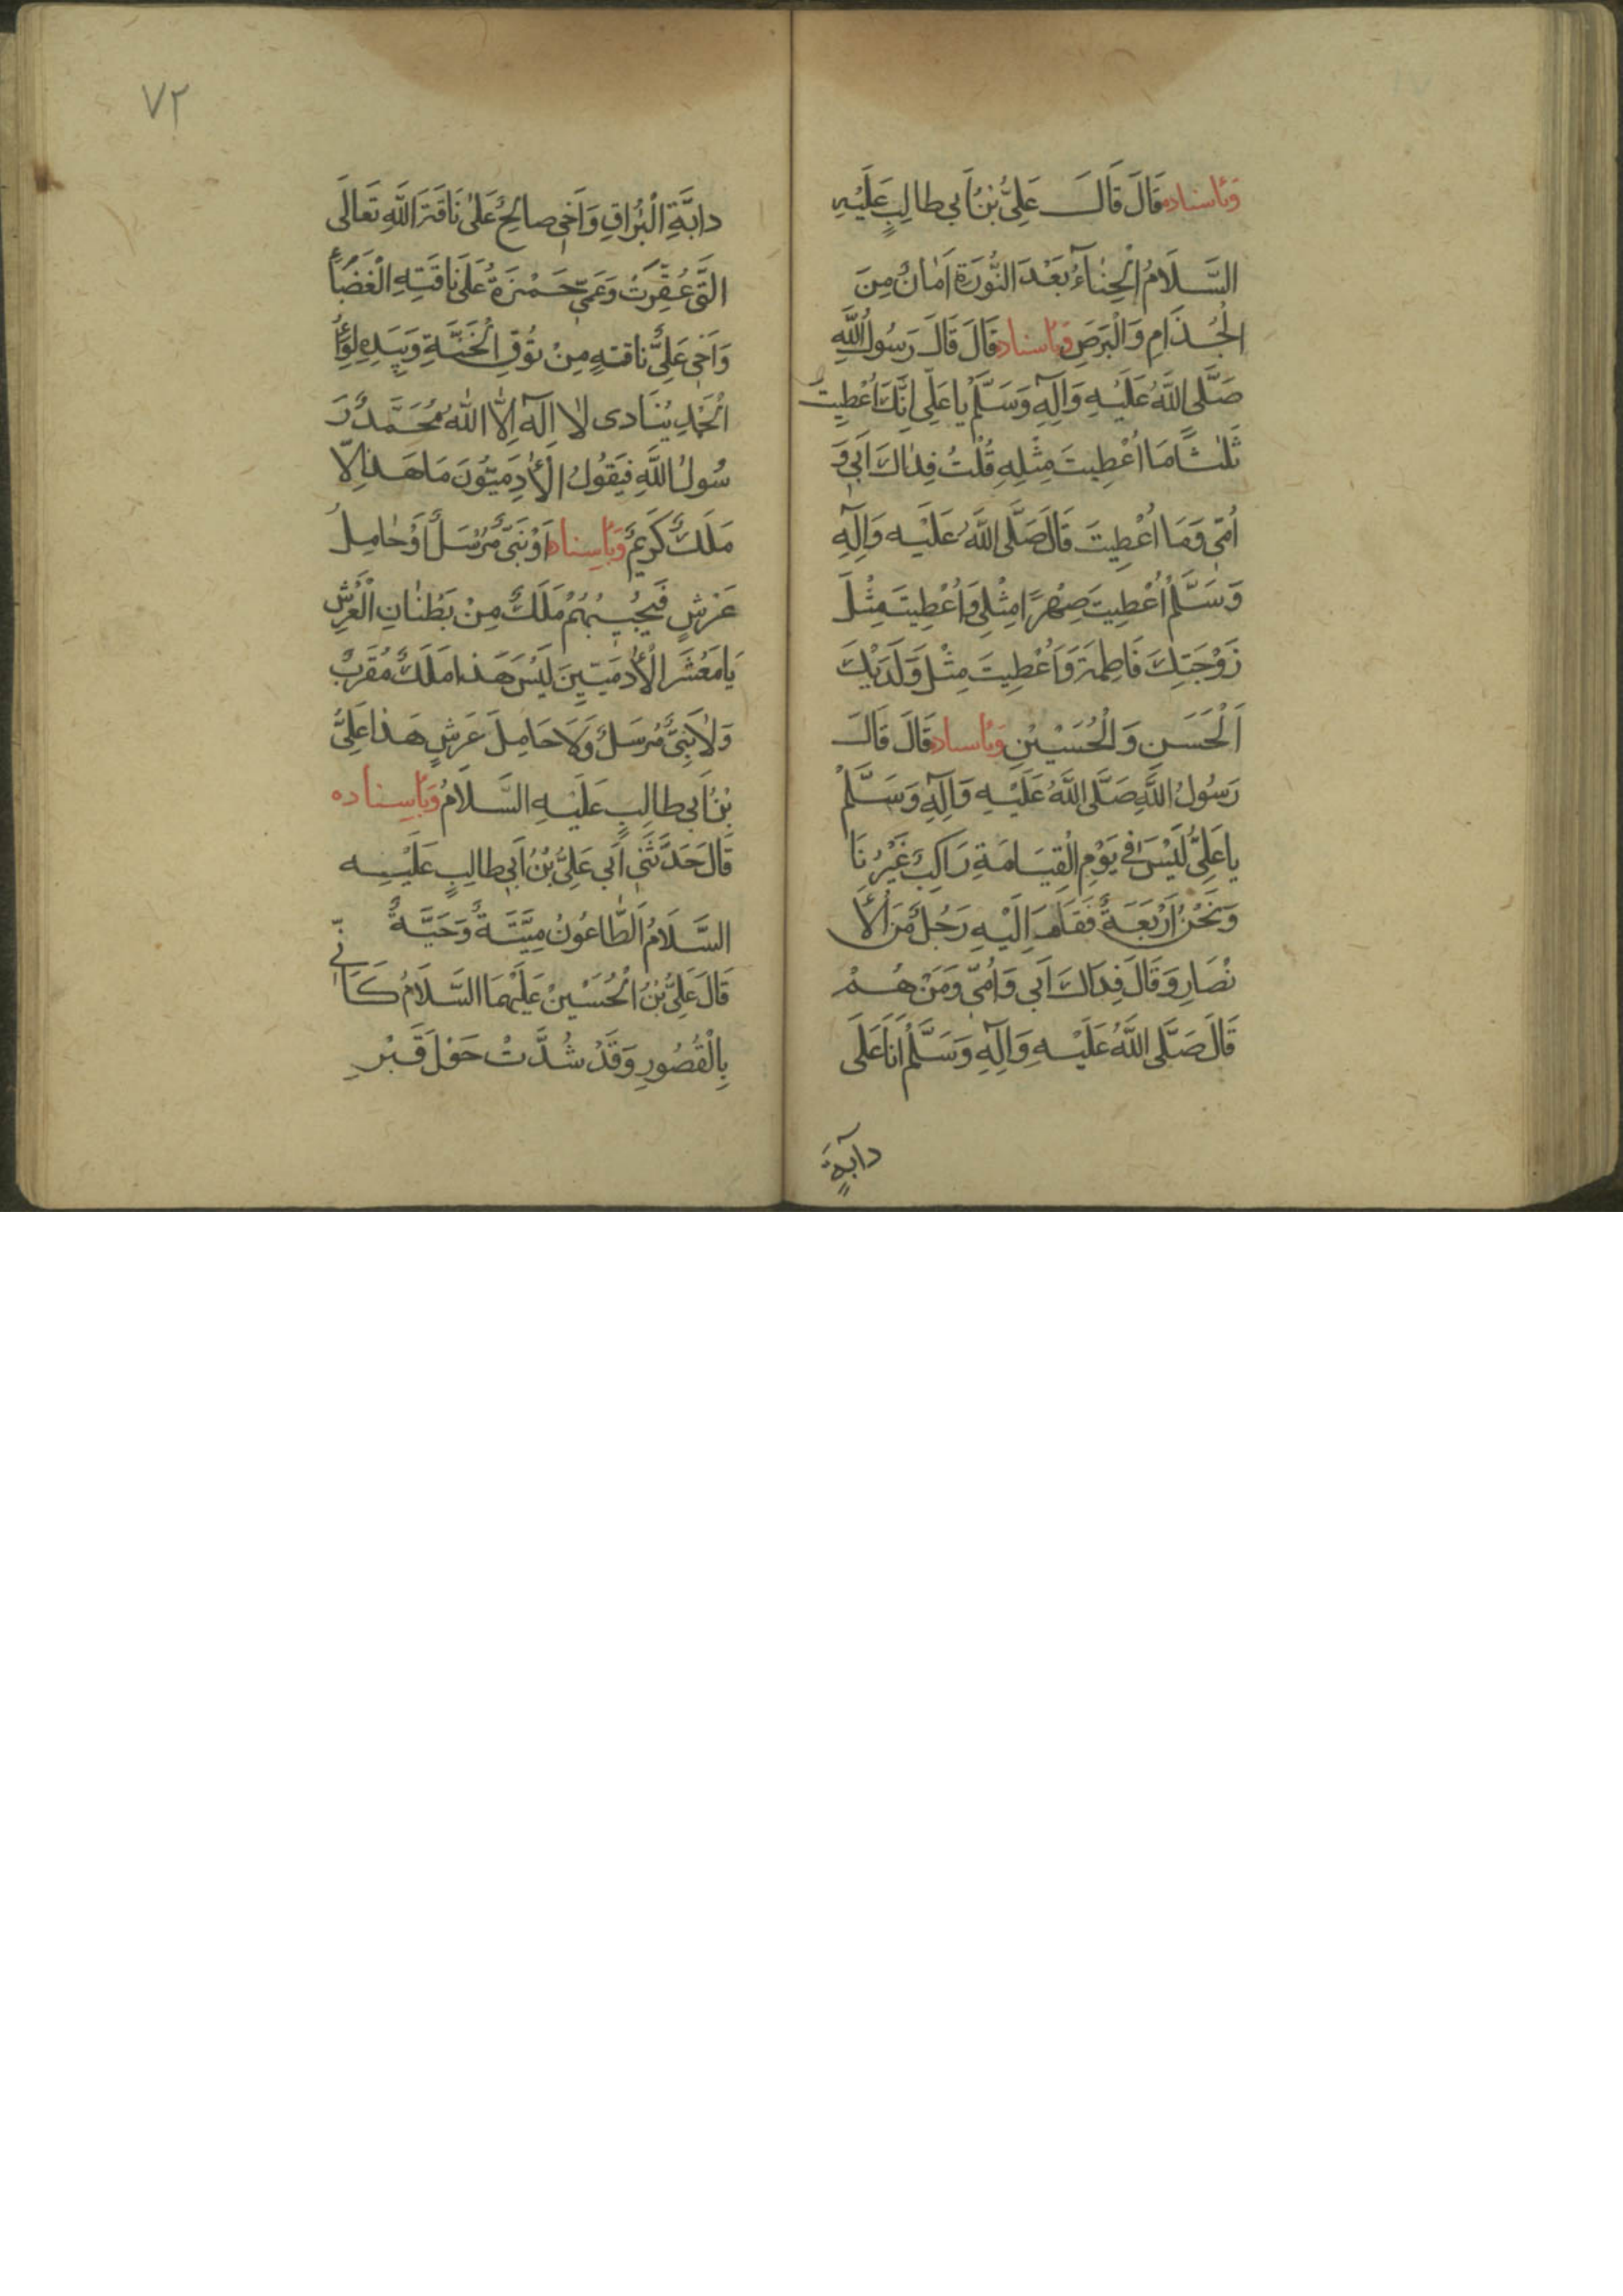 وَبِاسناده قَالَ قَالَ عَلِىُّ بْنُ اَبي طالِبٍ عَلَيْهِ
السَّلَامُ الْحِنّاءُ بَعْدَ النُّورَةِ اَمٰانٌ مِنَ
الْجُذَامِ وَالْبَرَصِ وَبِاسناده قَالَ قَالَ رَسُولُ اللَّهِ
صَلَّى اللَّهُ عَلَيْهِ وَآلِهِ وَسَلَّمْ يا عَلِى اِنَّكَ اُعْطِيتَ
ثَلٰثًا مَا اُعْطِيتَ مِثْلِهِ قُلْتُ فِدٰاكَ اَبى وَ
اُمّى وَمَا اُعْطِيتَ قَالَ صَلَّى اللَّهُ عَلَيْهِ وَآلِهِ
وَسَلَّمْ اُعْطِيتَ صِهْرًا مِثْلِى وَاُعْطِيتَ مِثْلَ
زَوْجَتِكَ فَاطِمَةَ وَاُعْطِيتَ مِثْلَ وَلَدَيْكَ
اَلْحَسَنِ وَالْحُسَيْنِ وَبِاسناده قَالَ قَالَ
رَسُولُ اللَّهِ صَلَّى اللَّهُ عَلَيْهِ وَآلِهِ وَسَلَّمْ
يا عَلِىُّ لَيْسَ فى يَوْمِ الْقِيَامَةِ رَاكِبٌ غَيْرُنَا
وَنَحْنُ اَرْبَعَةٌ فَقَامَ اِلَيْهِ رَجُلٌ مِنَ الْاَ
نْصَارِ وَقَالَ فِدَاكَ اَبى وَاُمّى وَمَنْ هُمْ
قَالَ صَلَّى اللَّهُ عَلَيْهِ وَآلِهِ وَسَلَّمْ اَنَا عَلَى
دآبةِ
٧٢
دابَّةِ الْبُرٰاقِ وَاَخى صالِحٌ عَلىٰ نَاقَةَ اللَّهِ تَعَالَى
الَّتى عُقِرَتْ وَعَمّى حَمْزَةُ عَلَى نَاقَتِهِ الْغَضْبَاءُ
وَاَخى عَلِىٌّ ناقتهِ مِنْ نُوقِ الْجَنَّةِ وَبِيَدِهِ لِوَآءُ
الْحَمْدِ يُنَادى لٰا اِلٰهَ اِلَّا اللهُ مُحَمَّدٌ رَ
سُولُ اللَّهِ فَيَقُولُ الْاٰدَمِيّوُنَ مَا هَذا اِلّا
مَلَكٌ كَرِيمٌ وَبِاسِناده اَوْ نَبىٌّ مُرْسَلٌ اَوْ حٰامِلُ
عَرْشٍ فَيُجيبُهُمْ مَلَكٌ مِنْ بَطْنٰانِ الْعَرْشِ
يَا مَعْشَرَ الْاٰدَمِيّينَ لَيْسَ هَذا مَلَكٌ مُقَرَّبٌ
وَلٰا نَبىٌّ مُرْسَلٌ وَلَا حَامِلَ عَرْشٍ هَذا عَلِىُّ
بْنُ اَبى طالِبٍ عَلَيْهِ السَّلَامُ وَبِاسِناده
قَالَ حَدَّثَنى اَبى عَلِىُّ بْنُ اَبى طالِبٍ عَلَيْهِ
السَّلَامُ اَلطّاعُونُ مِيتَةٌ وَحَيَّةٌ
قَالَ عَلِىُّ بْنُ الْحُسَيْنِ عَلَيْهِمَا السَّلَامُ كَاَنّى
بِالْقُصُورِ وَقَدْ شُدَّتْ حَوْلَ قَبْرِ